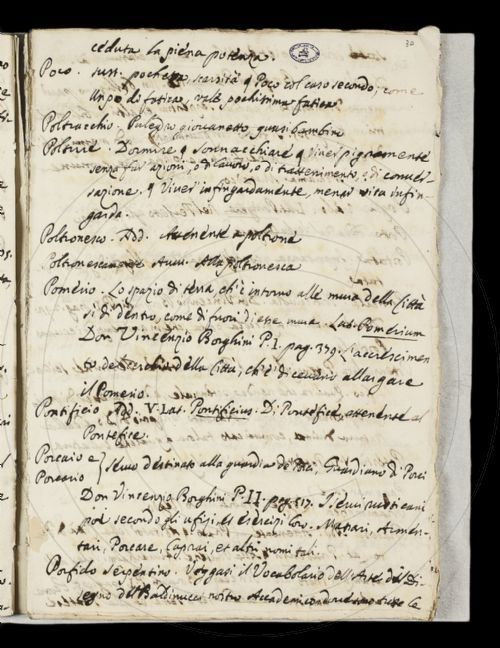 30
ceduta la piena potenza.
Poco. sust. pochezza scarsità q Poco col caso secondo, come
Un po' di fatica, vale pochissima fatica
Poltracchio. Puledro giovanetto, quasi bambino
Poltrire. Dormire q sonnacchiare q viver pigramente
senza far azioni, o di lavoro, o di trattenimento, o di conver-
sazione. q Viver infingardamente, menar vita infin-
garda.
Poltronesco. Add. Attenente a poltrone
Avv. Alla poltronesca
Pomerio. Lo spazio di terra, ch'è intorno alle mura della Città
sì di dentro, come di fuori di esse mura. Lat. Pomerium
Don Vincenzio Borghini P. I. pag. 379. L'accrescimen
to del cerchio della Città, ch'è' dicevano allargare
il Pomerio.
Pontificio Add. V. Lat. Pontificius. Di Pontefice, attenente al
Pontefice.
Porcaio e
Porcaro } destinato alla guardia de' Guardiano di Porci
Don Vincenzio Borghini P. II. pag. 517. I servi rusticani
poi secondo gli ufizj, et esercizi loro. Armen-
tari, Porcare, Caprai, et altri nomi tali.
Porfido serpentino. Veggasi il Vocabolario dell'Arte del Di
segno del Baldinucci nostro Accademico tutte le